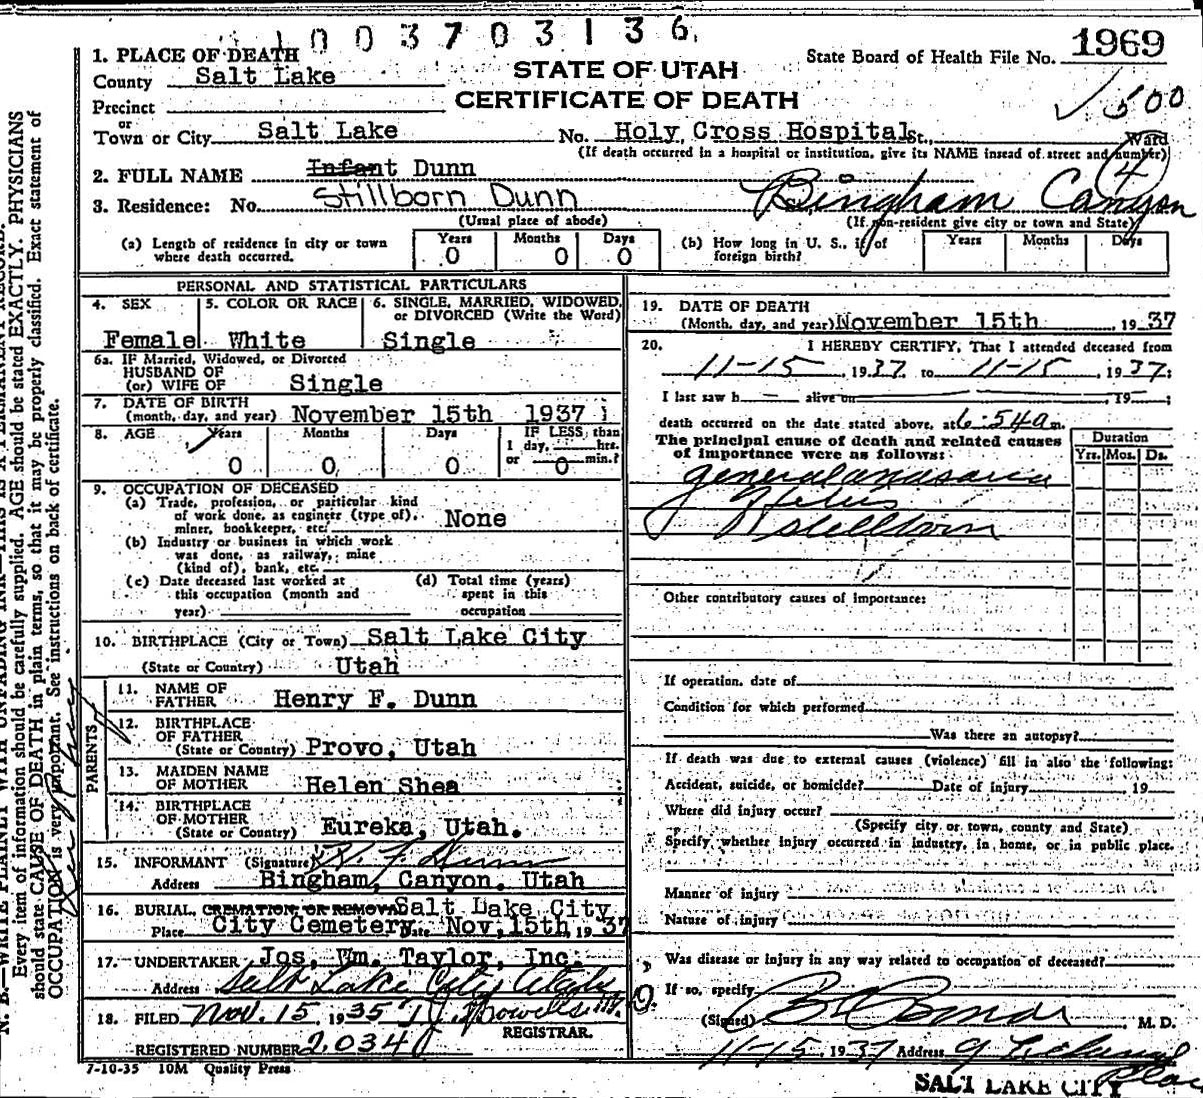 1003703136
1. PLACE OF DEATH
State Board of Health File No. 1969
County Salt Lake
STATE OF UTAH
✓ 500
Precinct
CERTIFICATE OF DEATH
or
Town or City Salt Lake No. Holy Cross Hospital St., Ward
(If death occurred in a hospital or institution, give its NAME insead of street and number)
4
2. FULL NAME Infant Dunn
Stillborn Dunn
3. Residence: No. St., Bingham Canyon
(Usual place of abode)
(If non-resident give city or town and State)
(a) Length of residence in city or town where death occurred. Years 0 Months 0 Days 0
(b) How long in U. S., if of foreign birth? Years Months Days
PERSONAL AND STATISTICAL PARTICULARS
4. SEX
Female
5. COLOR OR RACE
White
6. SINGLE, MARRIED, WIDOWED, or DIVORCED (Write the Word)
Single
6a. IF Married, Widowed, or Divorced
HUSBAND OF
(or) WIFE OF Single
7. DATE OF BIRTH
(month, day, and year) November 15th 1937
8. AGE Years 0 Months 0 Days 0 IF LESS than 1 day, hrs. or 0 min.?
9. OCCUPATION OF DECEASED
(a) Trade, profession, or particular kind
of work done, as engineer (type of),
miner, bookkeeper, etc. None
(b) Industry or business in which work
was done, as railway, mine
(kind of), bank, etc.
(c) Date deceased last worked at
this occupation (month and
year)
(d) Total time (years)
spent in this
occupation
10. BIRTHPLACE (City or Town) Salt Lake City
(State or Country) Utah
PARENTS
11. NAME OF
FATHER Henry F. Dunn
12. BIRTHPLACE
OF FATHER
(State or Country) Provo, Utah
13. MAIDEN NAME
OF MOTHER Helen Shea
14. BIRTHPLACE
OF MOTHER
(State or Country) Eureka, Utah.
15. INFORMANT (Signature) H. F. Dunn
Address Bingham, Canyon, Utah
16. BURIAL, CREMATION, OR REMOVAL Salt Lake City
Place City Cemetery Date Nov, 15th, 1937
17. UNDERTAKER Jos, Wm. Taylor, Inc.
Address Salt Lake City Utah
18. FILED Nov. 15, 1935 T. J. Howells M.D.
REGISTRAR.
REGISTERED NUMBER 2034
7-10-35 10M Quality Press
19. DATE OF DEATH
(Month, day, and year) November 15th, 1937
20. I HEREBY CERTIFY, That I attended deceased from
11-15, 1937, to 11-15, 1937;
I last saw h— alive on , 19 —;
death occurred on the date stated above, at 6:54 a m.
The principal cause of death and related causes
of importance were as follows:
Duration
Yrs. Mos. Ds.
general anasarca
stillborn
Other contributory causes of importance:
If operation, date of
Condition for which performed
Was there an autopsy?
If death was due to external causes (violence) fill in also the following:
Accident, suicide, or homicide? Date of injury 19
Where did injury occur?
(Specify city or town, county and State)
Specify whether injury occurred in industry, in home, or in public place.
Manner of injury
Nature of injury
Was disease or injury in any way related to occupation of deceased?
If so, specify
(Signed) M. D.
11-15, 1937 Address
SALT LAKE CITY
N. B.—WRITE PLAINLY WITH UNFADING INK—THIS IS A PERMANENT RECORD.
Every item of information should be carefully supplied. AGE should be stated EXACTLY. PHYSICIANS
should state CAUSE OF DEATH in plain terms, so that it may be properly classified. Exact statement of
OCCUPATION is very important. See instructions on back of certificate.